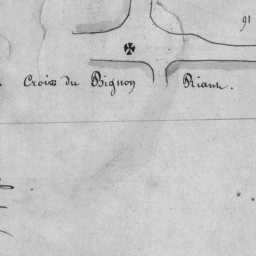 91
Croix du Bignon Riant.